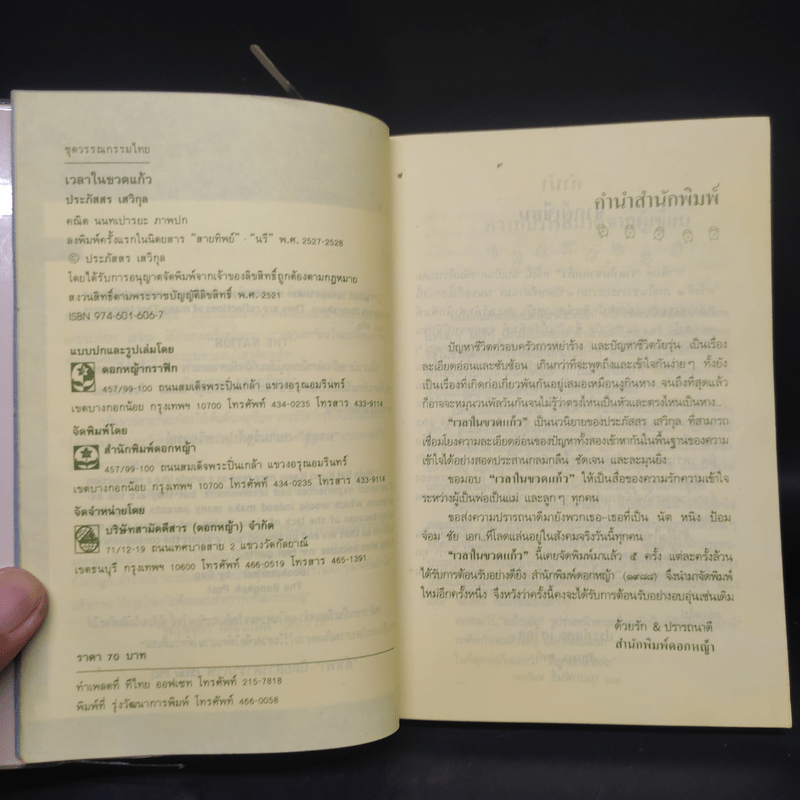 ชุดวรรณกรรมไทย
เวลาในขวดแก้ว
ประภัสสร เสวิกุล
คณิต นนทเปารยะ ภาพปก
ลงพิมพ์ครั้งแรกในนิตยสาร "สายทิพย์" - "นรี" พ.ศ. 2527-2528
© ประภัสสร เสวิกุล
โดยได้รับการอนุญาตจัดพิมพ์จากเจ้าของลิขสิทธิ์ถูกต้องตามกฎหมาย
สงวนสิทธิ์ตามพระราชบัญญัติลิขสิทธิ์ พ.ศ. 2521
ISBN 974-601-606-7
แบบปกและรูปเล่มโดย
ดอกหญ้ากราฟิก
457/99-100 ถนนสมเด็จพระปิ่นเกล้า แขวงอรุณอมรินทร์
เขตบางกอกน้อย กรุงเทพฯ 10700 โทรศัพท์ 434-0235 โทรสาร 433-9114
จัดพิมพ์โดย
สำนักพิมพ์ดอกหญ้า
457/99-100 ถนนสมเด็จพระปิ่นเกล้า แขวงอรุณอมรินทร์
เขตบางกอกน้อย กรุงเทพฯ 10700 โทรศัพท์ 434-0235 โทรสาร 433-9114
จัดจำหน่ายโดย
บริษัทสามัคคีสาร (ดอกหญ้า) จำกัด
71/12-19 ถนนเทศบาลสาย 2 แขวงวัดกัลยาณ์
เขตธนบุรี กรุงเทพฯ 10600 โทรศัพท์ 466-0519 โทรสาร 465-1391
ราคา 70 บาท
ทำเพลตที่ ทีไทย ออฟเซท โทรศัพท์ 215-7818
พิมพ์ที่ รุ่งวัฒนาการพิมพ์ โทรศัพท์ 466-0058
คำนำสำนักพิมพ์
ปัญหาชีวิตครอบครัวการหย่าร้าง และปัญหาชีวิตวัยรุ่น เป็นเรื่อง
ละเอียดอ่อนและซับซ้อน เกินกว่าที่จะพูดถึงและเข้าใจกันง่ายๆ ทั้งยัง
เป็นเรื่องที่เกิดก่อเกี่ยวพันกันอยู่เสมอเหมือนงูกินหาง จนถึงที่สุดแล้ว
ก็อาจจะหมุนวนพัลวันกันจนไม่รู้ว่าตรงไหนเป็นหัวและตรงไหนเป็นหาง...
"เวลาในขวดแก้ว" เป็นนวนิยายของประภัสสร เสวิกุล ที่สามารถ
เชื่อมโยงความละเอียดอ่อนของปัญหาทั้งสองเข้าหากันในพื้นฐานของความ
เข้าใจได้อย่างสอดประสานกลมกลืน ชัดเจน และละมุนยิ่ง
ขอมอบ "เวลาในขวดแก้ว" ให้เป็นสื่อของความรักความเข้าใจ
ระหว่างผู้เป็นพ่อเป็นแม่ และลูกๆ ทุกคน
ขอส่งความปรารถนาดีมายังพวกเธอ-เธอที่เป็น นัต หนิง ป้อม
จ๋อม ชัย เอก...ที่โลดแล่นอยู่ในสังคมจริงวันนี้ทุกคน
"เวลาในขวดแก้ว" นี้เคยจัดพิมพ์มาแล้ว ๕ ครั้ง แต่ละครั้งล้วน
ได้รับการต้อนรับอย่างดียิ่ง สำนักพิมพ์ดอกหญ้า (๑๙๘๘) จึงนำมาจัดพิมพ์
ใหม่อีกครั้งหนึ่ง จึงหวังว่าครั้งนี้คงจะได้รับการต้อนรับอย่างอบอุ่นเช่นเดิม
ด้วยรัก & ปรารถนาดี
สำนักพิมพ์ดอกหญ้า